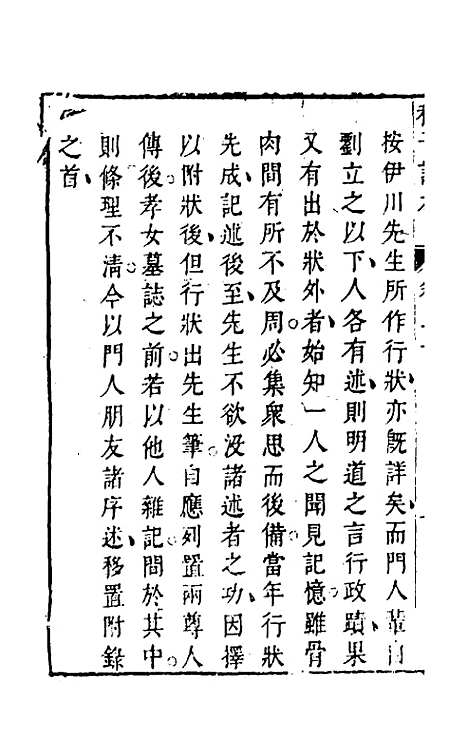 按伊川先生所作行狀、亦旣詳矣、而門人輩自
劉立之以下、人各有述、則明道之言行政蹟、果
又有出於狀外者、始知一人之聞見記憶、雖骨
肉間有所不及周。必集衆思而後備。當年行狀
先成、記述後至、先生不欲沒諸述者之功、因擇
以附狀後、但行狀出先生筆、自應列置兩尊人
傳後、孝女墓誌之前。若以他人雜記間於其中。
則條理不清。今以門人朋友諸序述、移置附錄
之首、